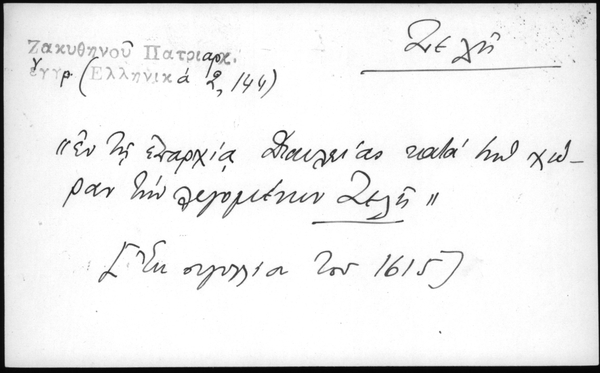 Ζελῆ
Ζακυθηνοῦ Πατριαρχ.
ἔγγρ (Ἑλληνικά 2, 144)
"ἐν τῇ ἐπαρχίᾳ Διαυλείας κατά τήν χώ-
ραν τήν λεγομένην Ζελῆ"
[Ἐκ σιγιλλίου τοῦ 1615]